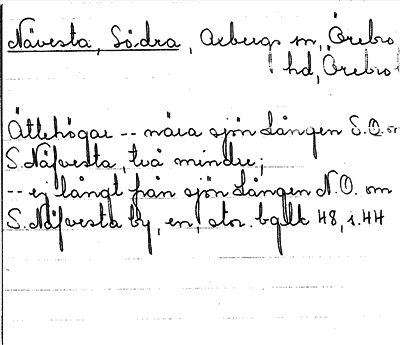 Nävesta, Södra, Axbergs sn, Örebro
hd, Örebro
Ättehögar -- nära sjön Lången S.O. om
S. Näfvesta, två mindre;
-- ej långt från sjön Lången N.O. om
S. Näfvesta by, en, stor. bglk 48, s. 44